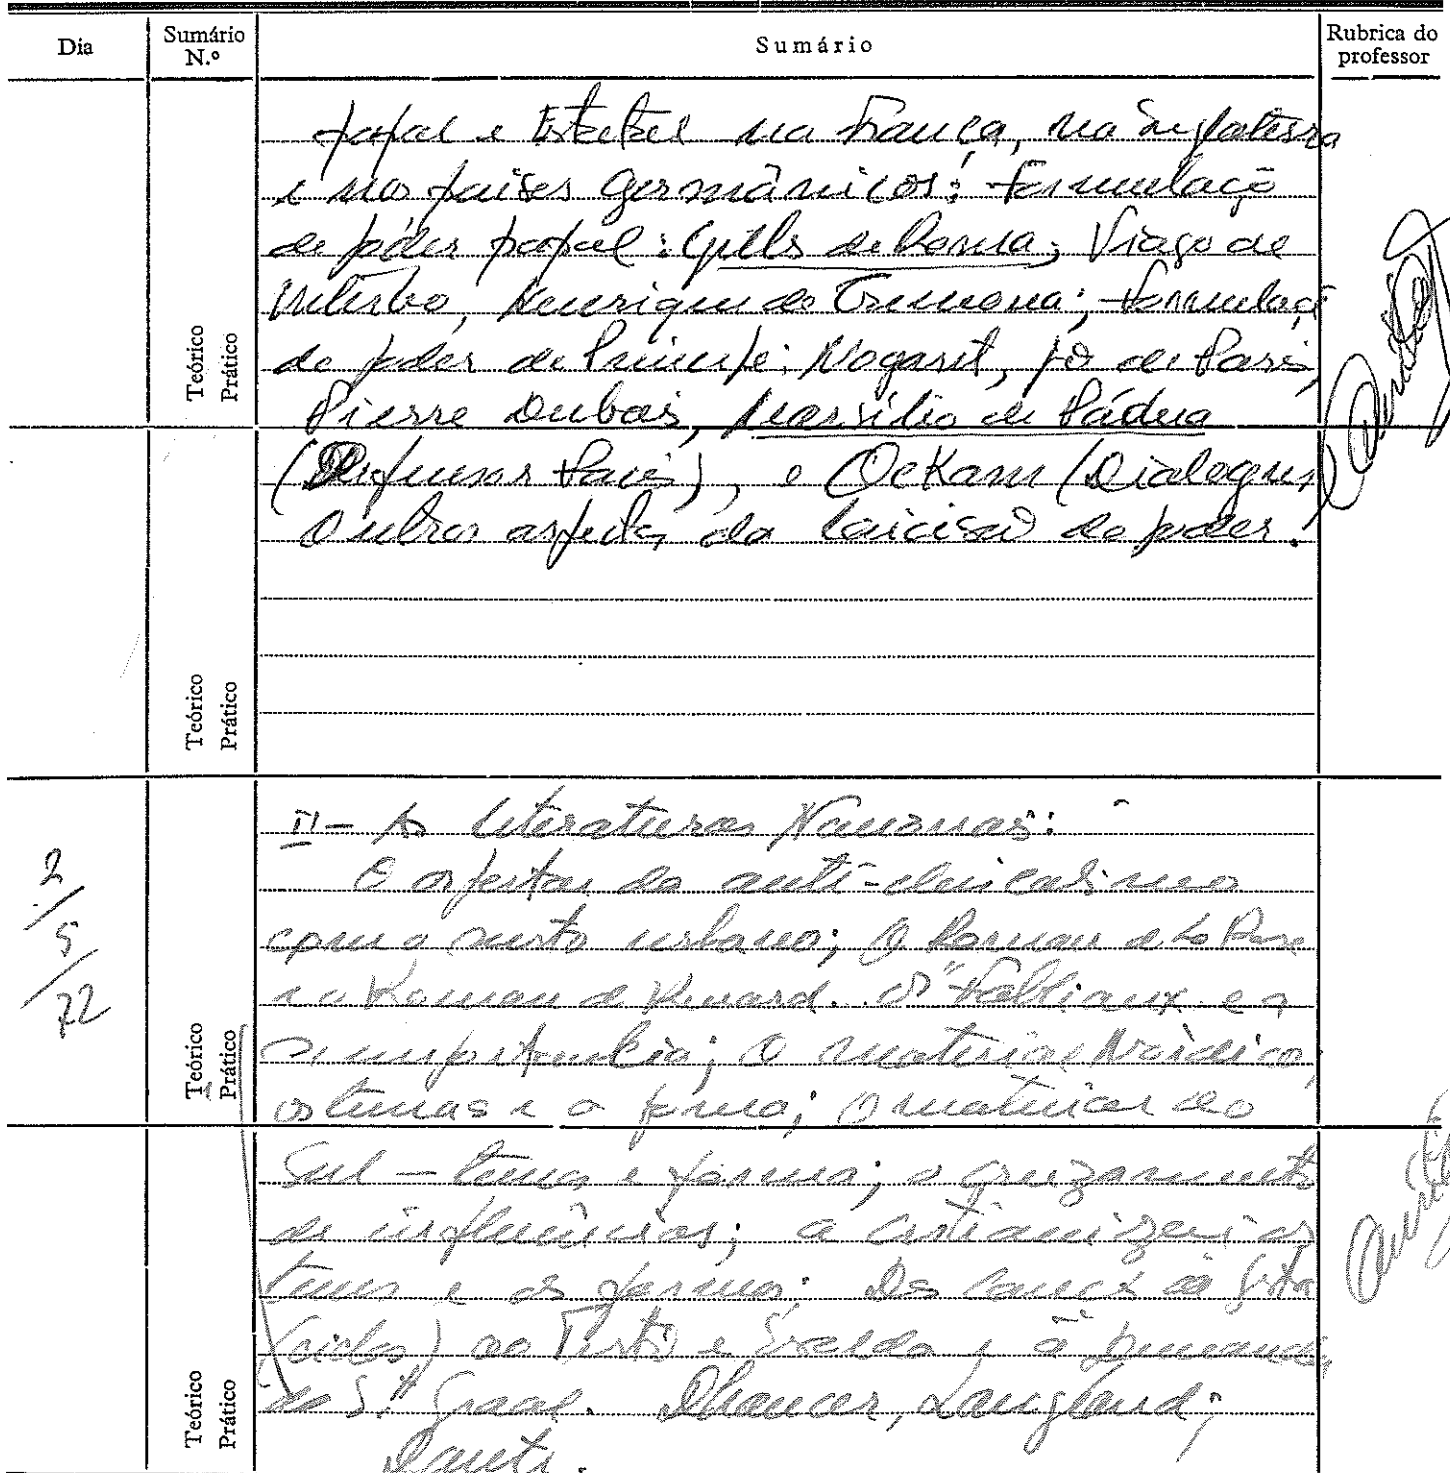 Dia
Sumário N.º
Sumário
Rubrica do professor
papal e Estatal na França, na Inglaterra
e nos países Germânicos: formulaçõ
de poder papal: Gills de Roma; Viago de
Viterbo, Henrique de Cremona; formulaçõ
do poder do Principe: Nogaret, Jº de Paris,
Pierre Dubois, Marsilio de Pádua
(Defensor Pacis), e Ockam (Dialogus
Outros aspectos da laicisaõ do poder.
Teórico
Prático
Teórico
Prático
2/5/72
II - As literaturas Nacionais:
O aspectos do anti-clericalismo
com o gosto urbano; O Roman de La Rose
e o Roman de Renard. Os "Fabliaux e a
importancia; O material Nordico,
os temas e a forma; O material do
Teórico
Prático
Sul - temas e forma; o cruzamento
de influências; a cristianizar os
temas e as formas: Das Canções de Gesta
(ciclos) ao Tristão e Isolda, à Demanda
do S.to Graal. Chaucer, Langland;
Dante.
Teórico
Prático